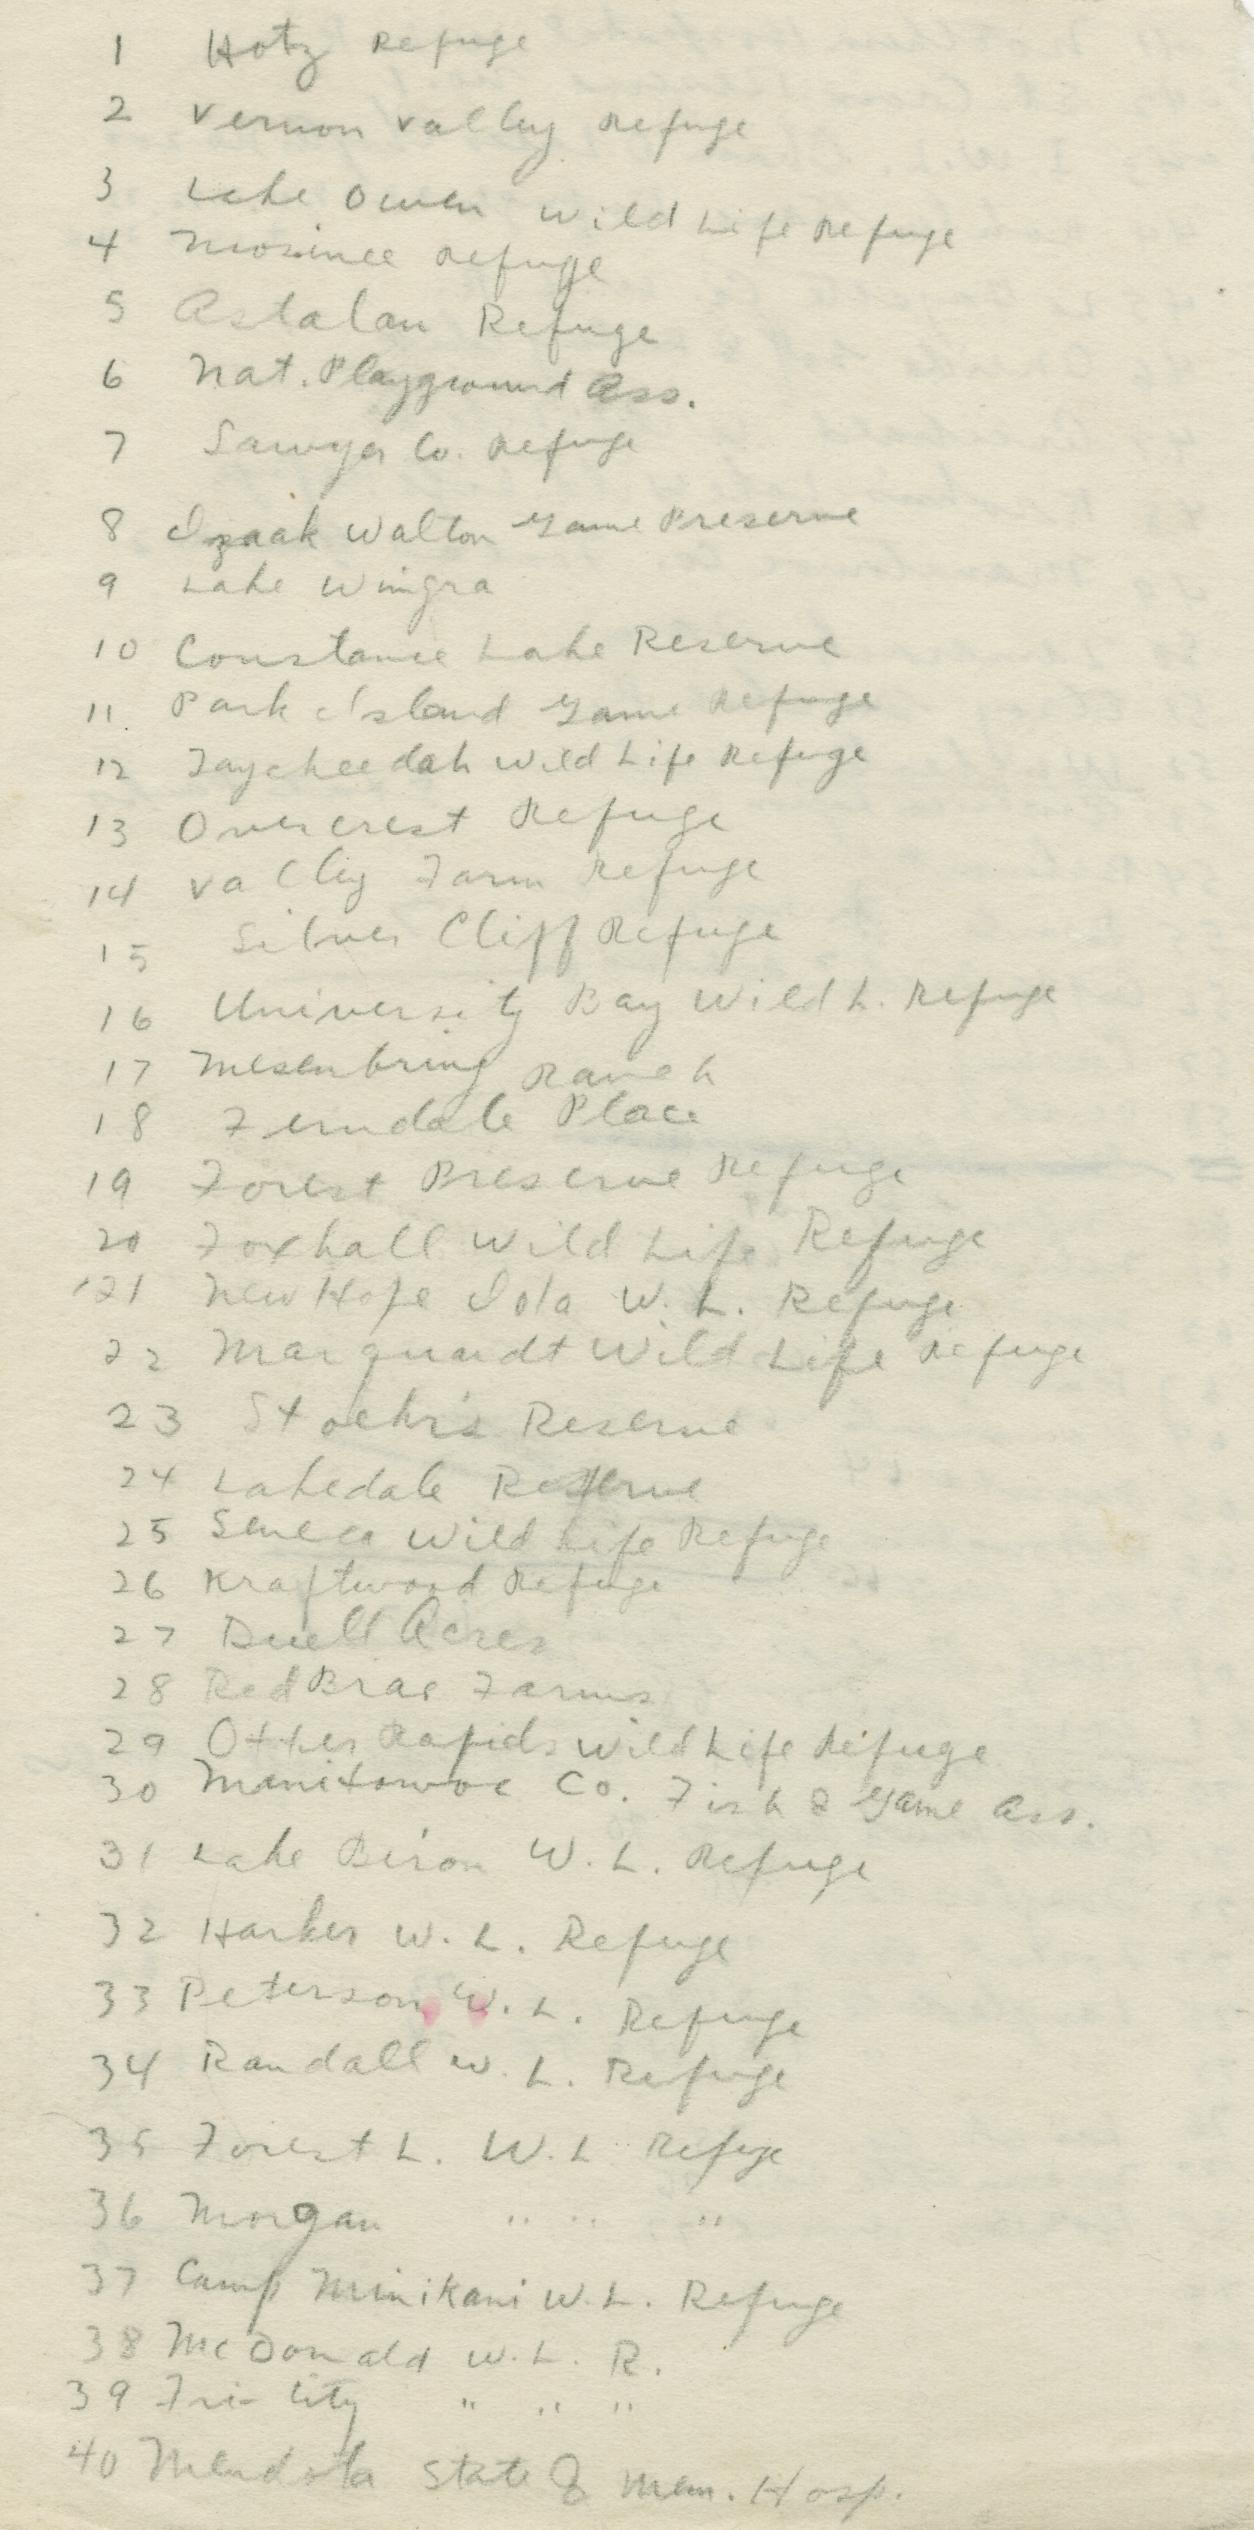 1 Hotz Refuge
2 Vernon Valley Refuge
3 Lake Owen Wild Life Refuge
4 Mosinee Refuge
5 Astalan Refuge
6 Nat. Playground Ass.
7 Sawyer Co. Refuge
8 Izaak Walton Game Preserve
9 Lake Wingra
10 Constance Lake Reserve
11. Park Island Game Refuge
12 Taycheedah Wild Life Refuge
13 Overcrest Refuge
14 Valley Farm Refuge
15 Silver Cliff Refuge
16 University Bay Wild L. Refuge
17 Mesenbring Ranch
18 Ferndale Place
19 Forest Preserve Refuge
20 Foxhall Wild Life Refuge
21 New Hope Iola W. L. Refuge
22 Marquardt Wild Life Refuge
23 Stoehr's Reserve
24 Lakedale Reserve
25 Seneca Wild Life Refuge
26 Kraftwood Refuge
27 Duell Acres
28 Red Brae Farms
29 Otter Rapids Wild Life Refuge
30 Manitowoc Co. Fish & Game Ass.
31 Lake Biron W. L. Refuge
32 Harker W. L. Refuge
33 Peterson W. L. Refuge
34 Randall W. L. Refuge
35 Forest L. W. L Refuge
36 Morgan " " "
37 Camp Minikani W. L. Refuge
38 McDonald W. L. R.
39 Tri-City " " "
40 Mendota State & Mem. Hosp.